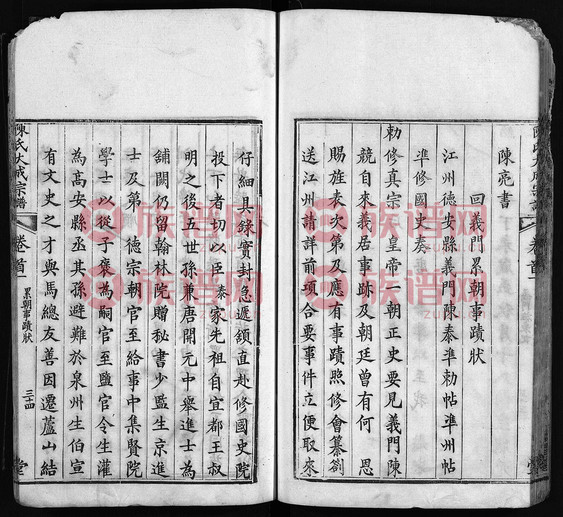 陳亮書
回義門累朝事蹟狀
江州德安縣義門陳泰準勅帖準州帖
準修國史奏
勅修真宗皇帝一朝正史要見義門陳
競自來義居事跡及朝廷曾有何 恩
賜旌表次第及應有事蹟照修會纂劄
送江州請詳前項合要事件立便取索
仔細具錄實封急遞領直赴修國史院
投下者切以臣泰家先祖自宜都王叔
明之後五世孫兼唐開元中舉進士為
鋪闕仍留翰林院贈秘書少監生京進
士及第 德宗朝官至給事中集賢院
學士以從子褒為嗣官至鹽官令生灌
為高安縣丞其孫避難於泉州生伯宣
有文史之才與馬總友善因遷廬山結
陳氏大成宗譜
卷首
累朝事蹟狀
三十四
堂
族谱网
zupu.cn